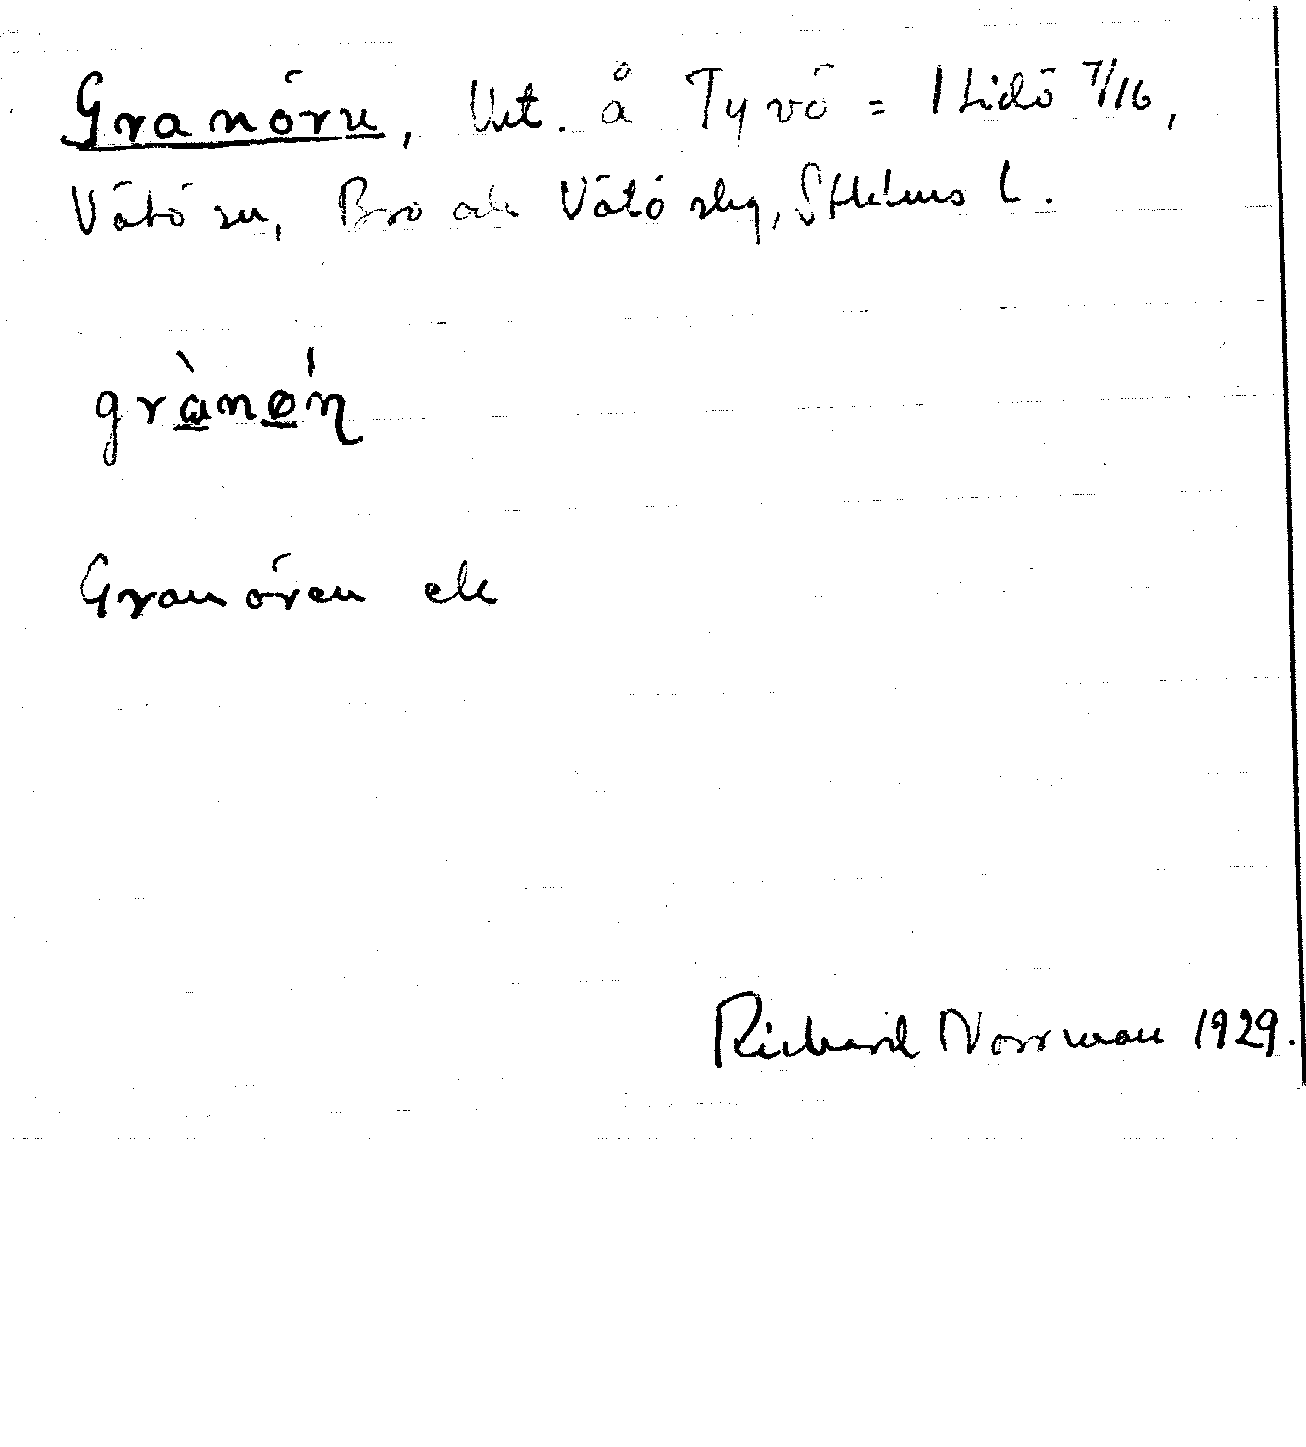 Granörn, Urt. å Tyvö = 1 Lidö 7/16,
Vätö sn, Bro och Vätö slg, Sthlms l.
grànǿn
Granören ek
Richard Norrman 1929.